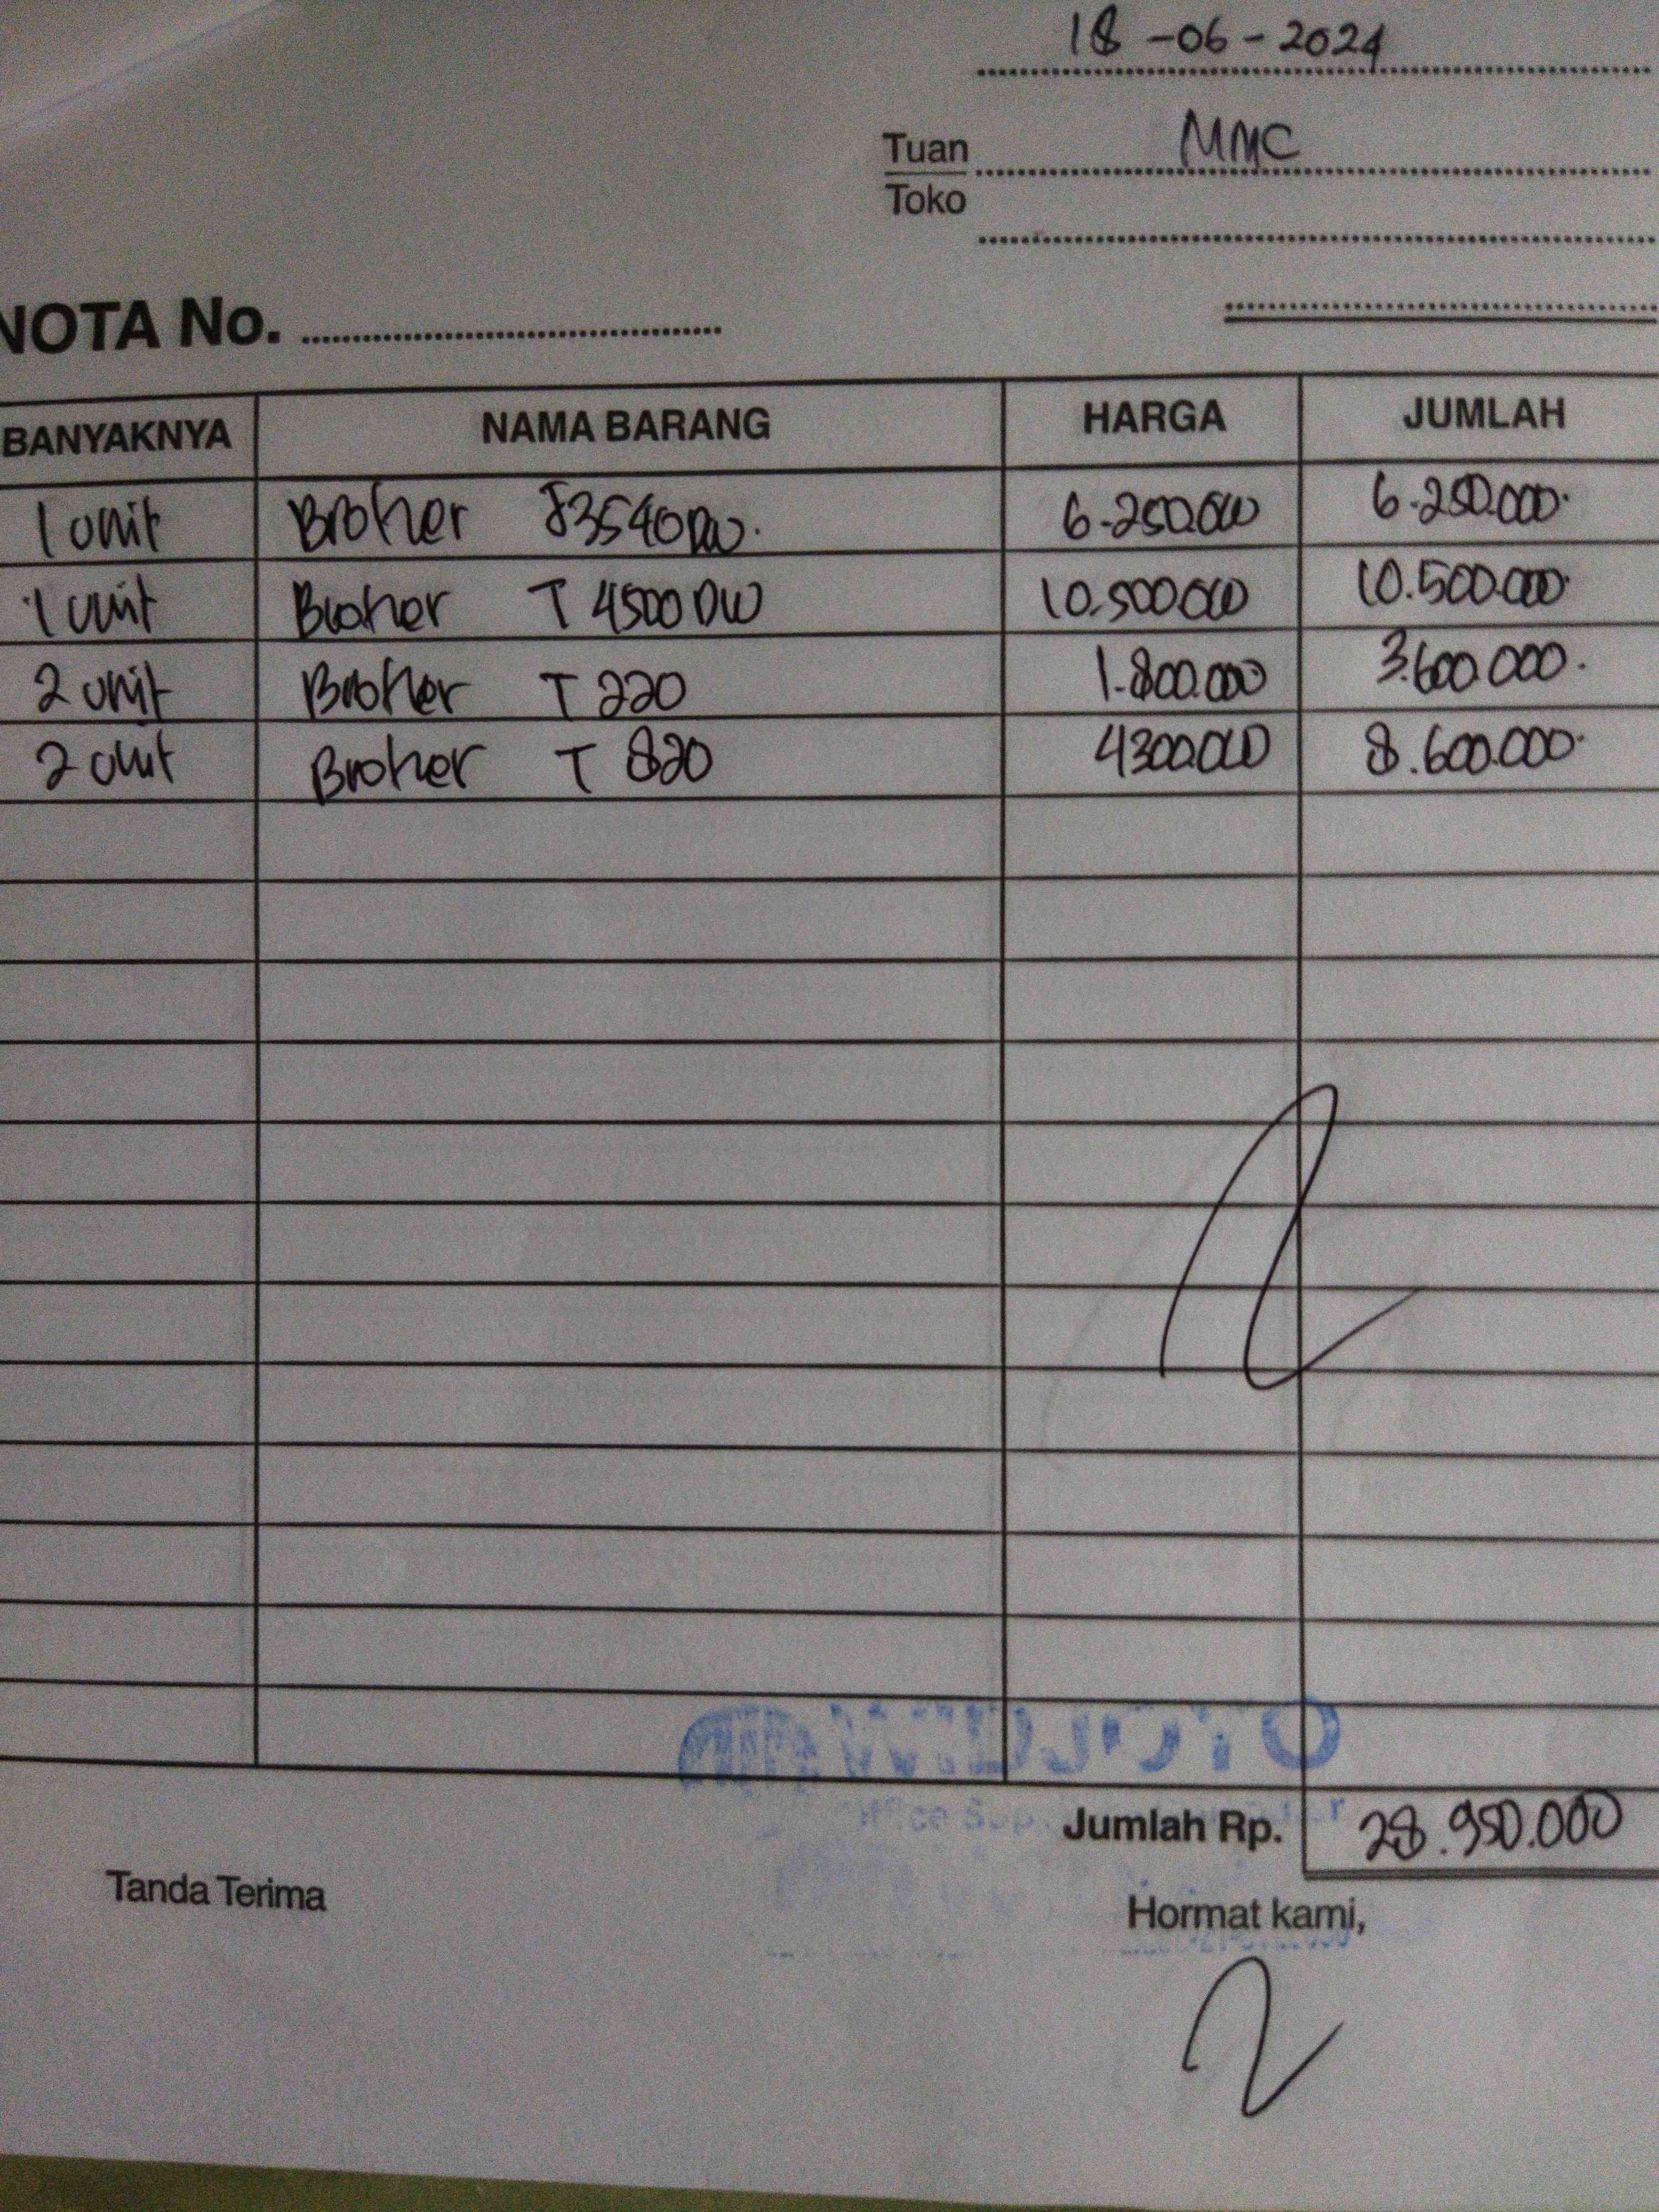 18-06-2024
Tuan MMC
Toko
NOTA No.
BANYAKNYA NAMA BARANG HARGA JUMLAH
1 unit Brother J3540DW. 6.250.000 6.250.000.
1 unit Brother T 4500 DW 10.500.000 10.500.000.
2 unit Brother T 220 1.800.000 3.600.000.
2 unit Brother T 820 4300.000 8.600.000.
Jumlah Rp. 28.950.000
Tanda Terima
Hormat kami,